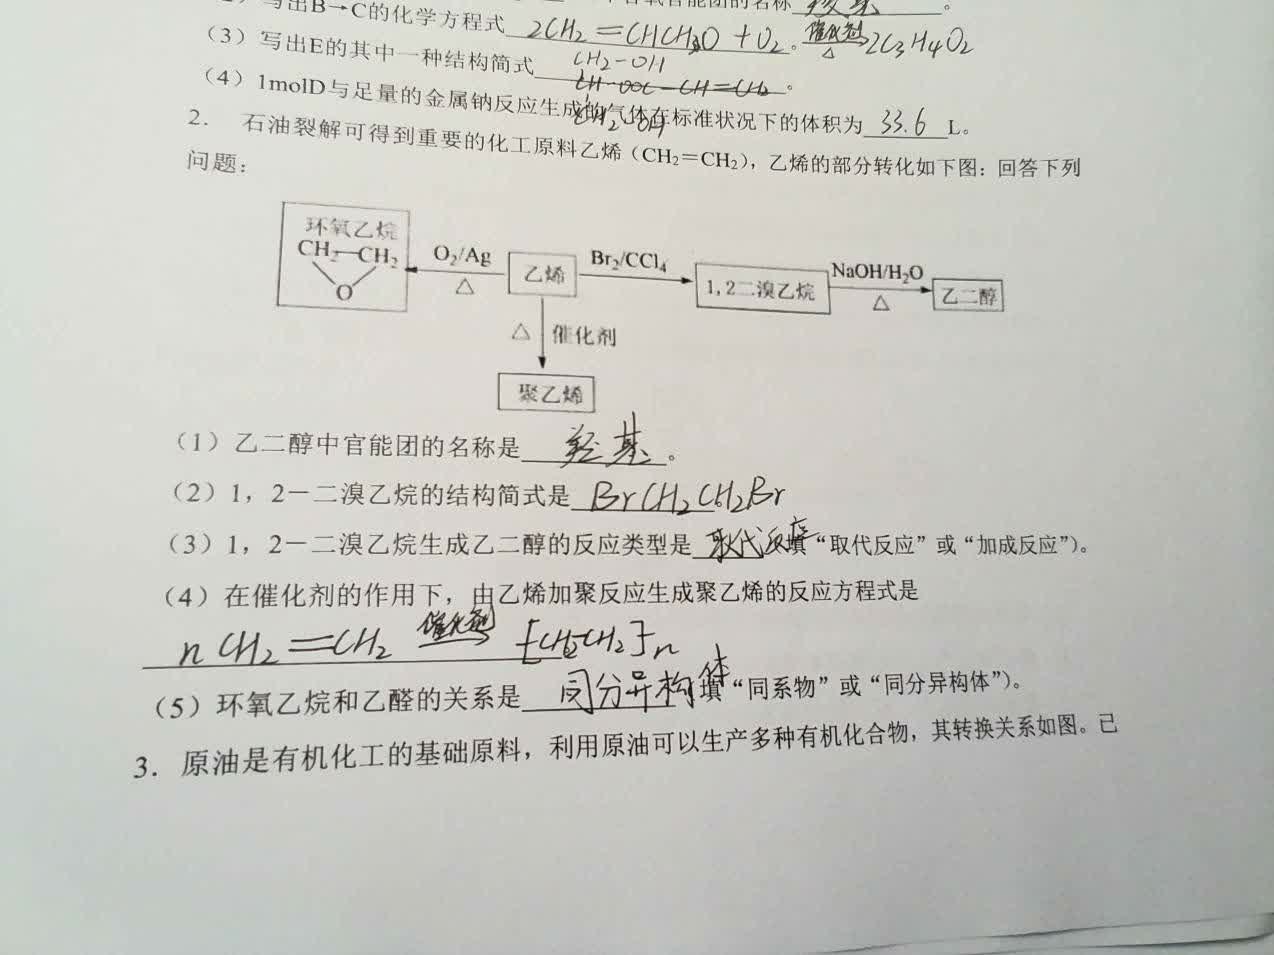 写出B→C的化学方程式 2CH₂=CHCH₃O+O₂ 催化剂 △ 2C₃H₄O₂
(3)写出E的其中一种结构简式 CH₂-OH
CH-OOC-CH=CH₂。
CH₂-OH
(4)1molD与足量的金属钠反应生成的气体在标准状况下的体积为 33.6 L。
2. 石油裂解可得到重要的化工原料乙烯(CH₂=CH₂),乙烯的部分转化如下图:回答下列
问题:
环氧乙烷
CH₂—CH₂
O
O₂/Ag
△
乙烯
Br₂/CCl₄
1,2二溴乙烷
NaOH/H₂O
△
乙二醇
△ 催化剂
聚乙烯
(1)乙二醇中官能团的名称是 羟基。
(2)1,2-二溴乙烷的结构简式是 BrCH₂CH₂Br
(3)1,2-二溴乙烷生成乙二醇的反应类型是 取代反应 填“取代反应”或“加成反应”)。
(4)在催化剂的作用下,由乙烯加聚反应生成聚乙烯的反应方程式是
nCH₂=CH₂ 催化剂 [CH₂CH₂]n
(5)环氧乙烷和乙醛的关系是 同分异构体 填“同系物”或“同分异构体”)。
3. 原油是有机化工的基础原料,利用原油可以生产多种有机化合物,其转换关系如图。已